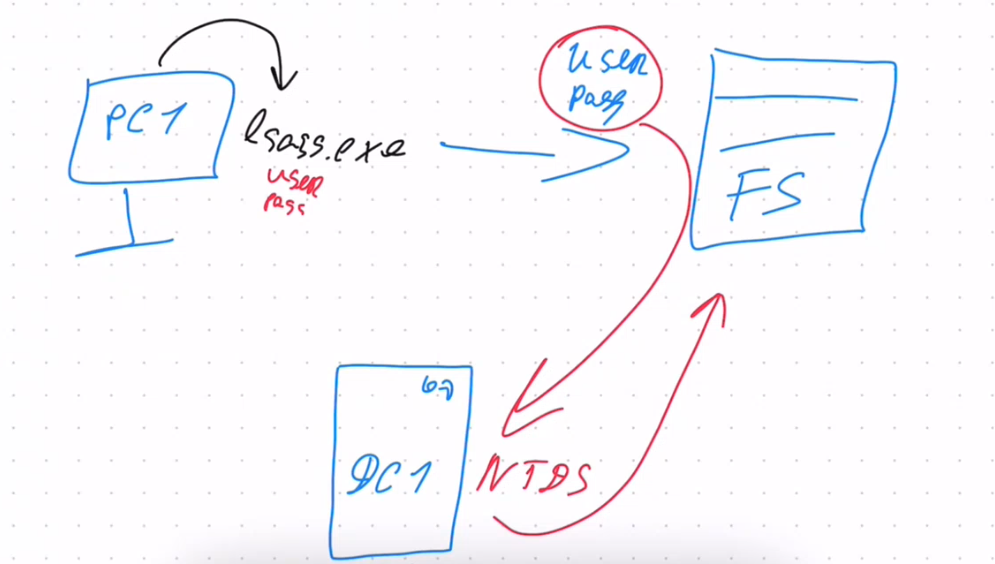 PC1
lsass.exe
user
pass
user
pass
FS
DC1
NTDS